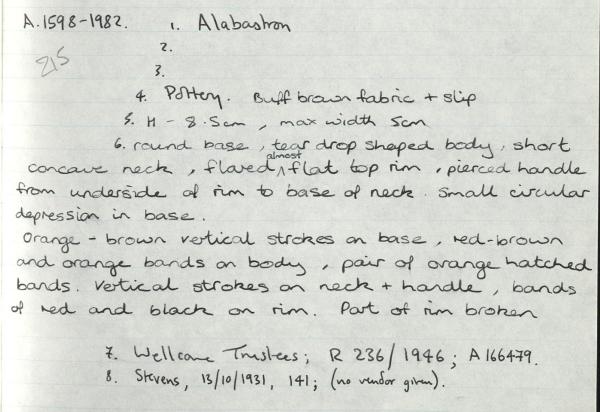 A.1598-1982. 1. Alabastron
2.
215
3.
4. Pottery. Buff brown fabric + slip
5. H - 8.5cm, max width 5cm
6. round base, tear drop shaped body, short
concave neck, flared, almost flat top rim, pierced handle
from underside of rim to base of neck. Small circular
depression in base.
Orange-brown vertical strokes on base, red-brown
and orange bands on body, pair of orange hatched
bands. Vertical strokes on neck + handle, bands
of red and black on rim. Part of rim broken
7. Wellcome Trustees; R 236/1946; A 166479.
8. Stevens, 13/10/1931, 141; (no vendor given).